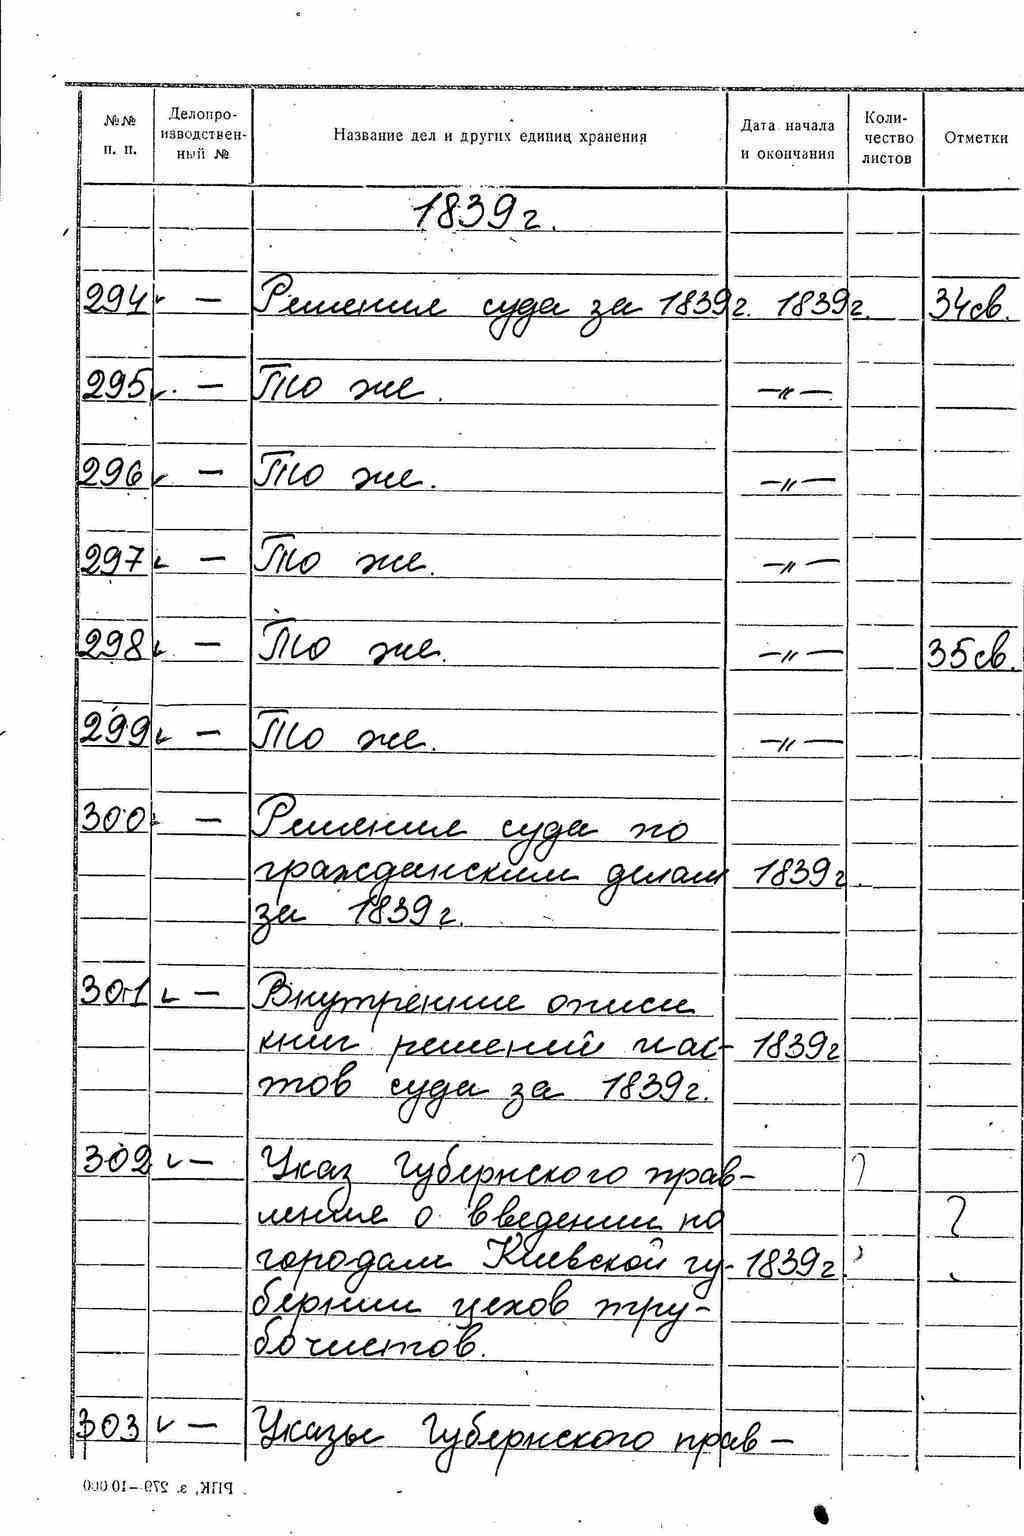 №№ п. п. Делопроизводственный № Название дел и других единиц хранения Дата начала и окончания Количество листов Отметки
1839 г.
294 ✓ — Решения суда за 1839 г. 1839 г. 34 св.
295 ✓ — То же. —〃—
296 ✓ — То же. —〃—
297 ✓ — То же. —〃—
298 ✓ — То же. —〃— 35 св.
299 ✓ — То же. —〃—
300 ✓ — Решения суда по
гражданским делам 1839 г.
за 1839 г.
301 ✓ — Внутренние описи
книг решений и ак- 1839 г
тов суда за 1839 г.
302 ✓ — Указ Губернского прав- ?
ления о введении по ?
городам Киевской гу- 1839 г.
бернии цехов тру-
бочистов.
303 ✓ — Указы Губернского прав-
РПК, з. 279—10 000